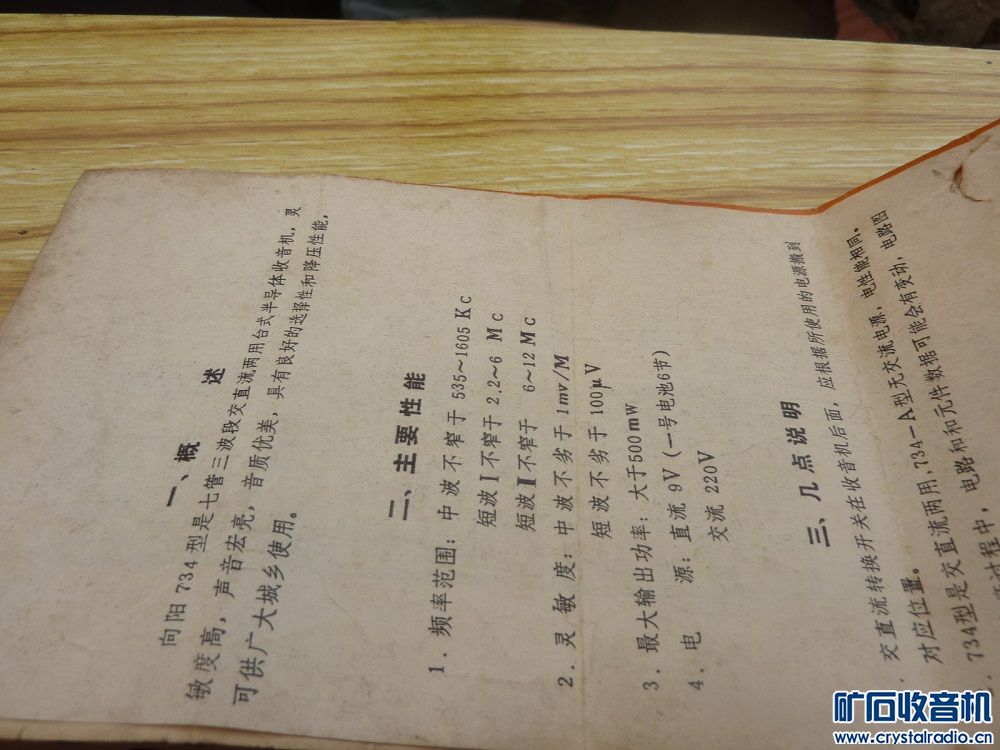 一、概述
向阳734型是七管三波段交直流两用台式半导体收音机，灵
敏度高，声音宏亮，音质优美，具有良好的选择性和降压性能，
可供广大城乡使用。
二、主要性能
1．频率范围：中波不窄于 535～1605 Kc
短波Ⅰ不窄于 2.2～6 Mc
短波Ⅱ不窄于 6～12 Mc
2．灵敏度：中波不劣于 1mv/M
短波不劣于 100μV
3．最大输出功率：大于500mw
4．电源：直流 9V（一号电池6节）
交流 220V
三、几点说明
交直流转换开关在收音机后面，应根据所使用的电源搬到
对应位置。
734型是交直流两用，734—A型无交流电源，电性能相同。
过程中，电路和和元件数据可能会有变动，电路图
矿石收音机
www.crystalradio.cn